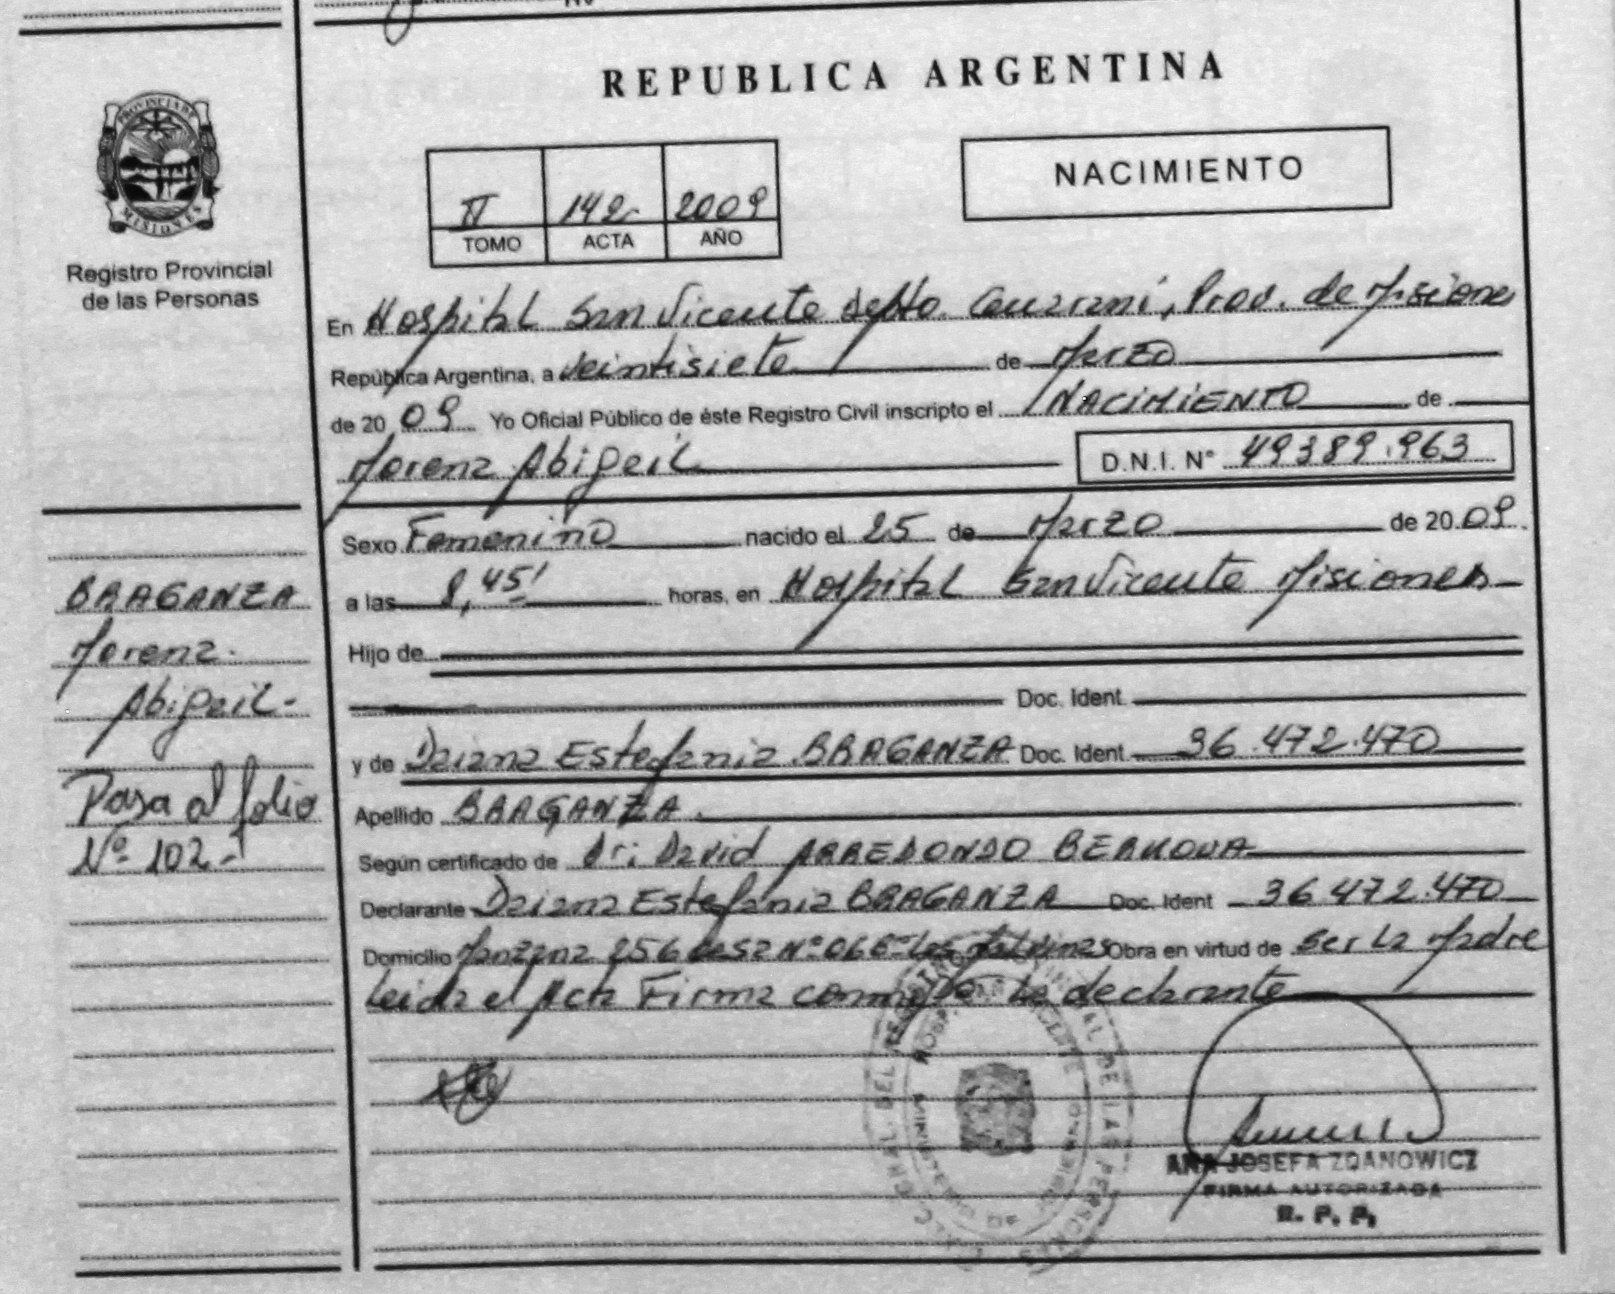 REPUBLICA ARGENTINA
PROVINCIA DE
MISIONES
Registro Provincial
de las Personas
II 142 2009
TOMO ACTA AÑO
NACIMIENTO
En Hospital San Vicente depto. Guarani, Prov. de Misiones
República Argentina, a veintisiete de Marzo
de 2009 Yo Oficial Público de éste Registro Civil inscripto el NACIMIENTO de
Morena Abigail D.N.I. N° 49389.963
Sexo Femenino nacido el 25 de Marzo de 2009.
a las 8,45' horas, en Hospital San Vicente Misiones
Hijo de
Doc. Ident.
y de Daiana Estefania BRAGANZA Doc. Ident. 36.472.470
Apellido BRAGANZA.
Según certificado de Dr: David ARREDONDO
Declarante Daiana Estefania BRAGANZA Doc. Ident 36.472.470
Domicilio Manzana 256 casa N° 066 Las Malvinas Obra en virtud de ser la Madre
Leida el Acta Firma conmigo la declarante
BRAGANZA
Morena
Abigail-
Pasa al folio
Nº 102-
ANA JOSEFA ZDANOWICZ
FIRMA AUTORIZADA
R. P. P.